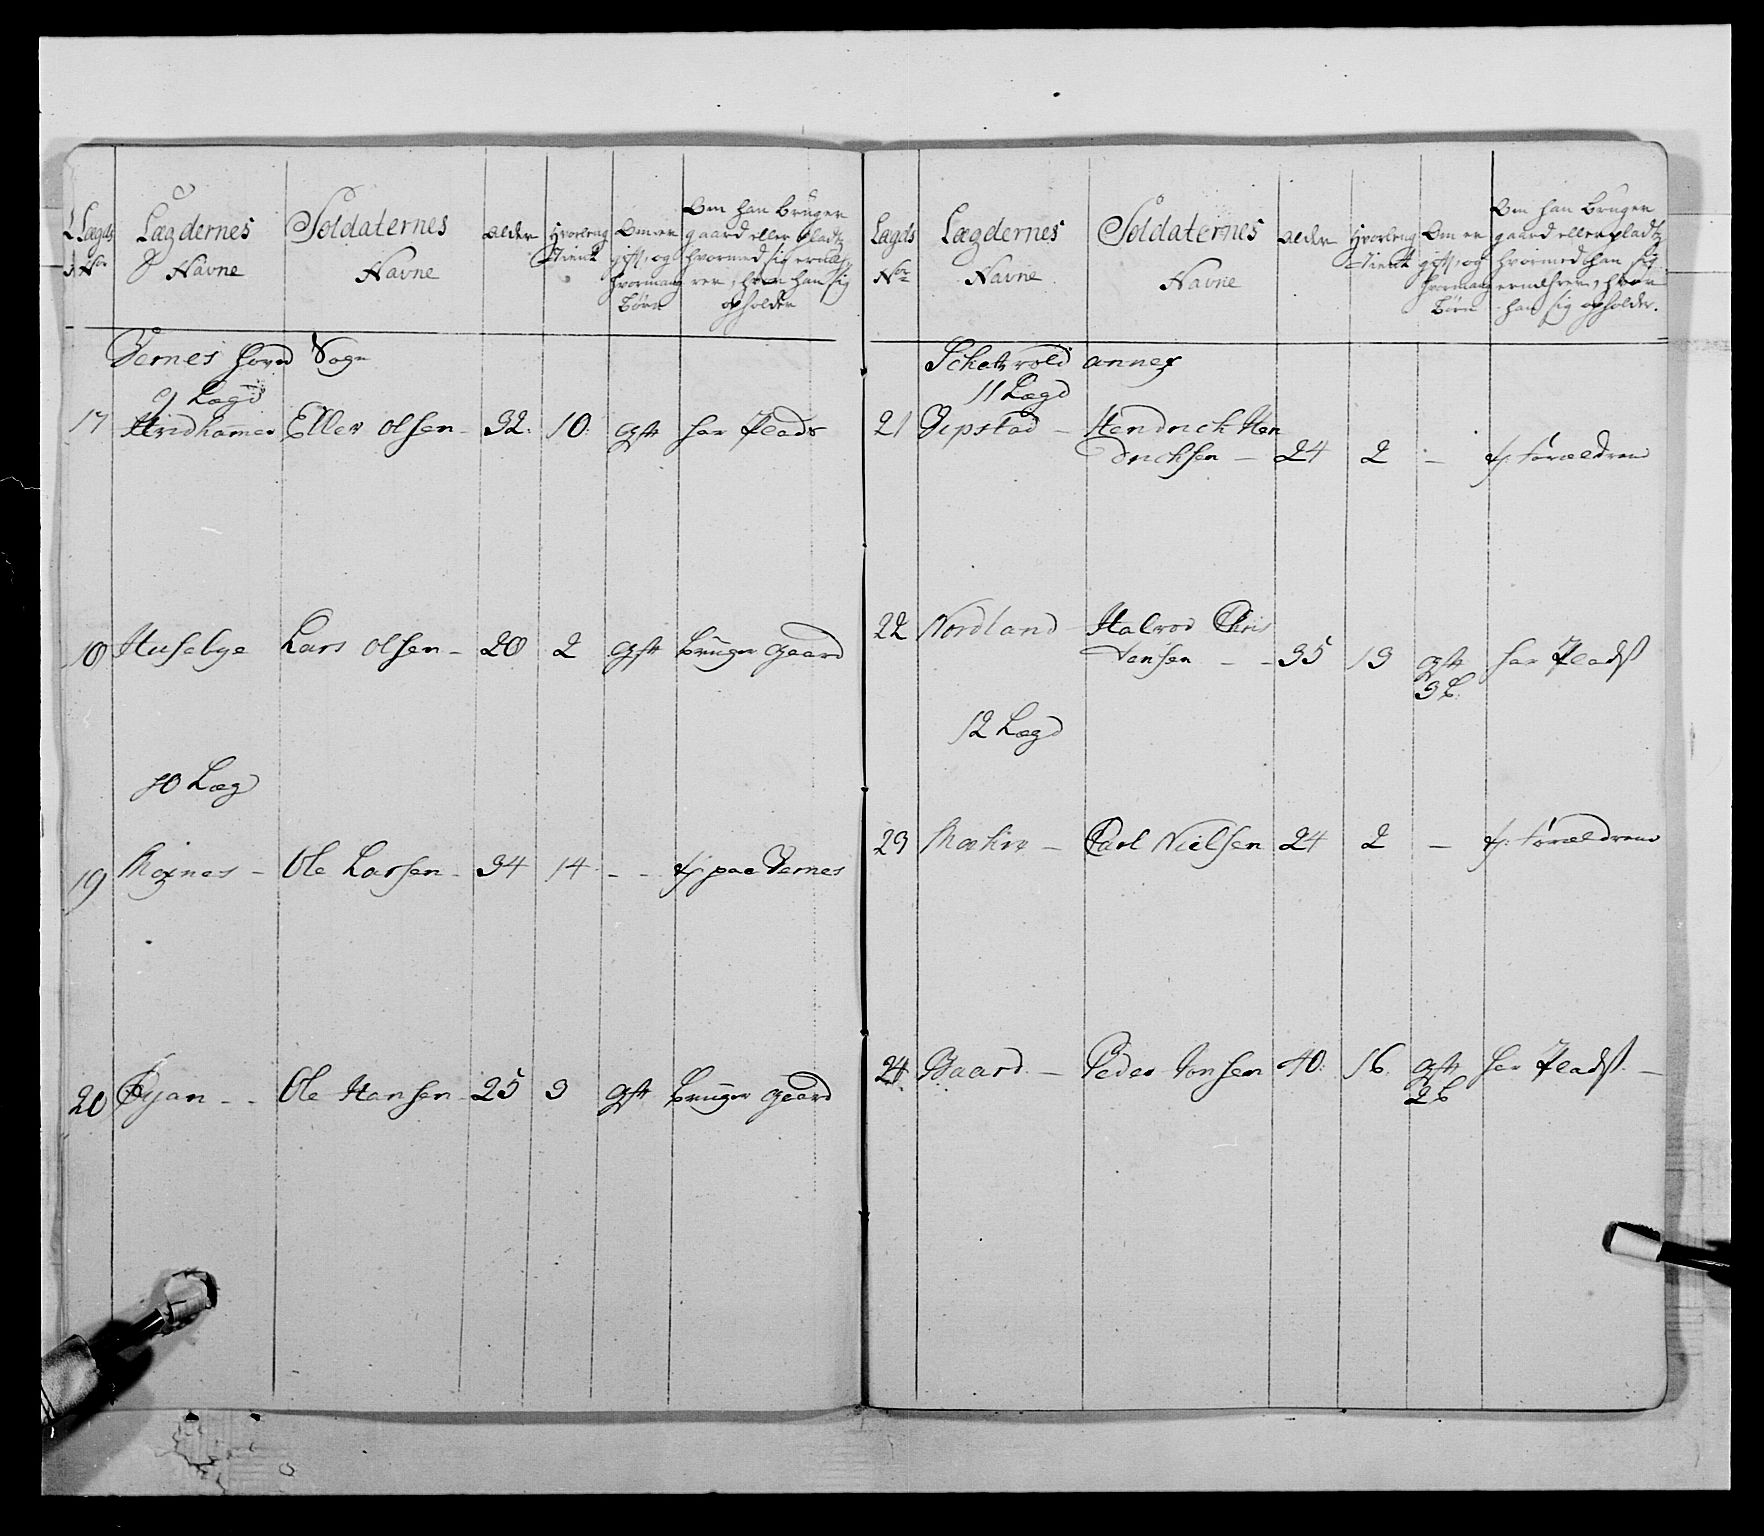 Lægds No.
Lægdernes Navne
Soldaternes Navne
Alder
Hvorleng tient
Om er gift, og hvormang Børn
Om han bruger gaard eller pladtz hvormed sig ernæ= rer, hvor han sig opholder
Vernes hovd Sogn
9 Lægd
17 Hridhammer Eller Olsen - 32. 10. gft har Plads
18 Huselye Lars Olsen - 28 2 gft bruger gaard
10 Læg
19 Moxnes - Ole Larsen - 34 14 - - tj: paa Vernes
20 Øyan - - Ole Hansen 25 3 gft bruger gaard
Lægds No.
Lægdernes Navne
Soldaternes Navne
Alder
Hvorleng tient
Om er gift, og hvormang Børn
Om han bruger gaard eller pladtz hvormed han sig ernæhrer, hvor han sig opholder.
Schatvold annex
11 Lægd
21 Gipstad - Hendrich Hen
drichsen - 24 2 - tj: forældrene
22 Nordland - Halvor Chris
tensen - - 35 13 gft har Pladst
3 b.
12 Lægd
23 - Carl Nielsen 24 2 - tj: forældrene
24 Gaard - Peder Jonsen 40. 16. gft har Pladst. -
2 b